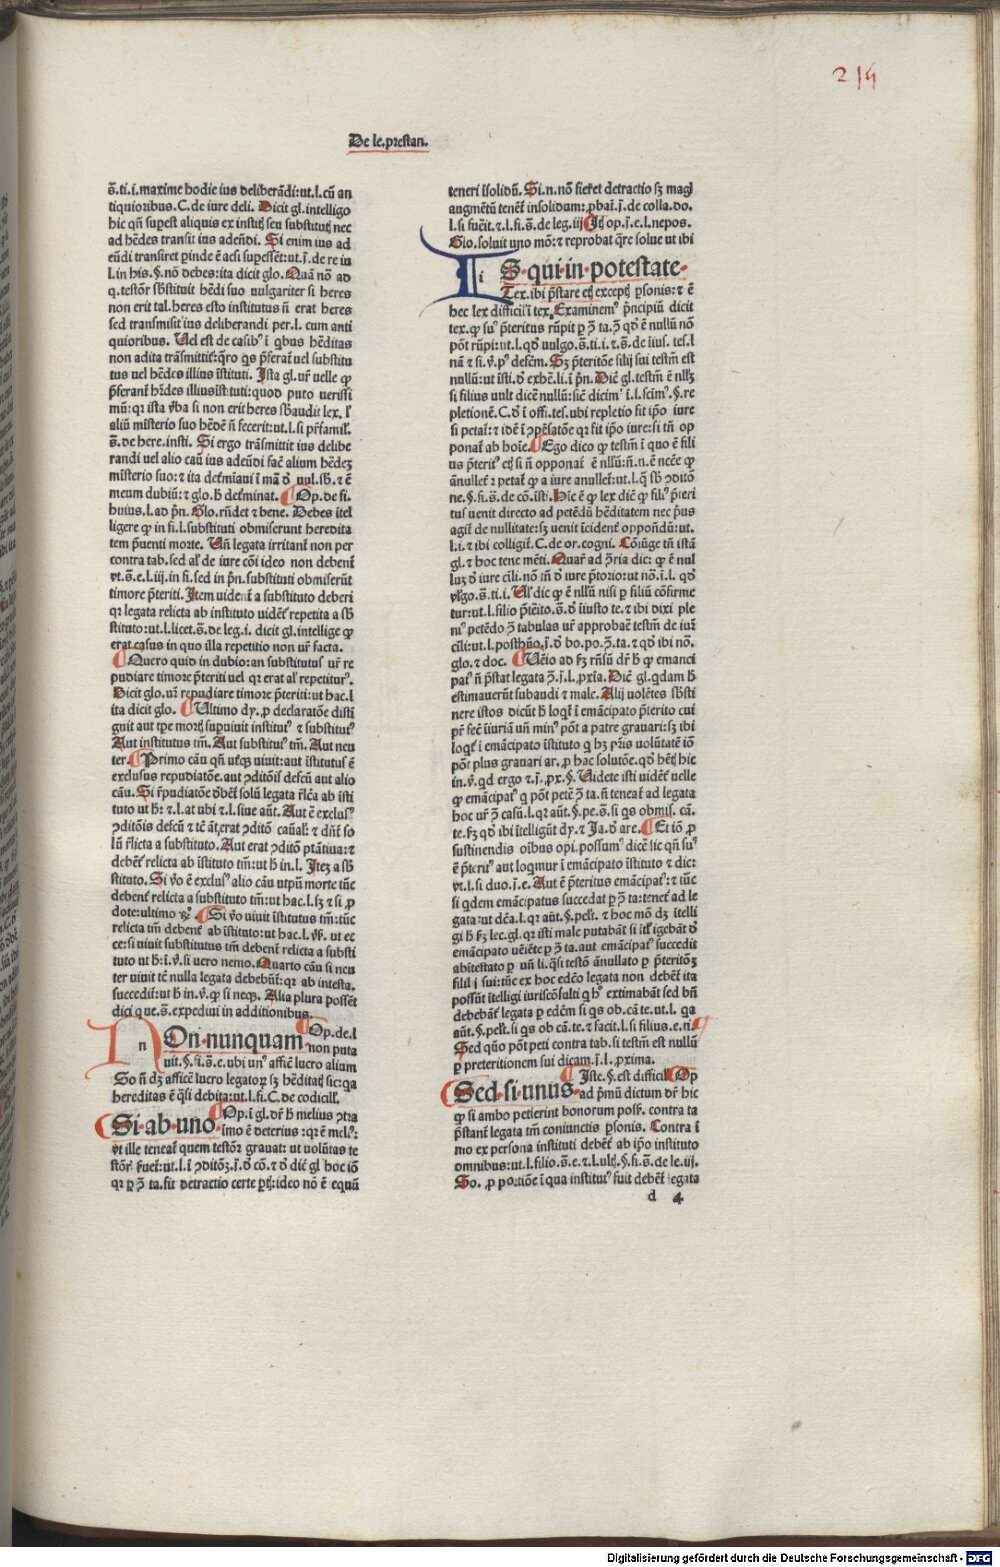 214
De le.prestan.
s̄.ti.i.maxime hodie ius deliberādi:ut.l.cū an
tiquioribus.C.de iure deli. Dicit gl.intelligo
hic qñ supest aliquis ex institꝭ seu substitutꝭ nec
ad hēdes transit ius adeūdi. Si enim ius ad
eūdi transiret ꝑinde ē acsi supesset:ut.j̄.de re iu
l.in his.§.nō debes:ita dicit glo. Quā nō ad
q.testōr sb̄stituit hēdi suo uulgariter si heres
non erit tal.heres esto institutus ñ erat heres
sed transmisit ius deliberandi per.l. cum anti
quioribus. Uel est de casibꝰ ī qbus hēditas
non adita trāsmittit̄:q̄ro qs p̄ferat̄ uel substitu
tus uel hēdes illius īstituti. Ista gl.ur̄ uelle ꝙ
p̄ferant̄ hr̄des illius īstituti:quod puto uerissi
mū: qr ista v̄ba si non erit heres sb̄audit lex. l'
aliū misterio suo hēdē ñ fecerit:ut.l.si pr̄famil'.
s̄.de here.insti. Si ergo trāsmittit ius delibe
randi uel alio cāu ius adeūdi facē alium hēdeꝫ
misterio suo:ꝛ ita det̄mīaui ī mā ď uul.sb̄.ꝛ ē
meum dubiū:ꝛ glo.ħ det̄minat. ¶Op.de fi.
huius.l.ad p̄n. Glo.rn̄det ꝛ bene. Debes ītel
ligere ꝙ in fi.l.substituti obmiserunt heredita
tem p̄uenti morte. Un̄ legata irritant̄ non per
contra tab.sed al' de iure cōi ideo non debent̄
vt.s̄.e.l.iij.in fi.sed in p̄n.substituti obmiserūt
timore p̄teriti. Item uident̄ a substituto deberi
qr legata relicta ab instituto uidēt̄ repetita a sb̄
stituto:ut.l.licet.s̄.de leg.i. dicit gl.intellige ꝙ
erat casus in quo illa repetitio non ur̄ facta.
¶Quero quid in dubio:an substitutus ur̄ re
pudiare timore p̄teriti uel qr erat al' repetiturꝰ.
Dicit glo.ur̄ repudiare timore p̄teriti:ut hac.l
ita dicit glo. ¶Ultimo dy.ꝓ declaratōe disti
guit aut tꝑe mortꝭ supuiuit institutꝰ ꝛ substitutꝰ
Aut institutus tm̄. Aut substitutꝰ tm̄. Aut neu
ter.¶Primo cāu qn̄ uterqꝫ uiuit:aut īstitutusꝰ ē
exclusus repudiatōe.aut ꝯditōis defcū aut alio
cāu. Si r̄pudiatōe ďbet̄ solū legata rl'cta ab īsti
tuto ut ħ: ꝛ.l.at ubi ꝛ.l.siue aūt. Aut ē exclusꝰ
ꝯditōis defcū ꝛ tc̄ āt;erat ꝯditō cāual': ꝛ dn̄t so
lū r̄licta a substituto. Aut erat ꝯditō ptātiua:ꝛ
debēt̄ relicta ab īstituto tm̄:ut ħ in.l. Iteꝫ a sb̄
stituto. Si v̄o ē exclusꝰ alio cāu utpū morte tūc
debent̄ relicta a substituto tm̄:ut hac.l.sꝫ ꝛ si ꝓ
dote:ultimo rn̄. ¶Si v̄o uiuit īstitutus tm̄:tūc
relicta tm̄ debent̄ ab īstituto:ut hac.l.v̄s. ut ec
ce:si uiuit substitutus tm̄ debent̄ relicta a substi
tuto ut ħ:i.v̄.si uero nemo. Quarto cāu si neu
ter uiuit tc̄ nulla legata debebūt̄:qr ab intesta.
succedit̄:ut ħ in.v̄.ꝙ si neqꝫ. Alia plura possēt
dici que.s̄.expediui in additionibus.
n
On·nunquam·
¶Op.de.l
non puta
uit.§.si.s̄.e.ubi unꝰ afficit̄ lucro alium
So ñ dꝫ afficit̄ lucro legatoꝝ sꝫ hēditatꝭ sic:qa
hereditas ē q̄si debita:ut.l.fi.C.de codicill'.
¶Si·ab·uno·
¶Op.ī gl.dr̄ ħ melius ꝯtra
imo ē deterius :qr ē melꝰ:
vt ille teneat̄ quem testōr grauat: ut uolūtas te
stōr̄ fuet̄:ut.l.ī ꝯditōꝫ.j̄.ď cō.ꝛ ď dic̄ gl hoc iō
qr ꝑ ꝯ ta.fit detractio certe ꝑtꝭ:ideo nō ē equū
teneri īsolidū. Si.n.nō fieret detractio sꝫ magꝭ
augmētū tenet̄ insolidum:ꝓbat̄.j̄.de colla.do.
l.si fuēit.ꝛ.l.fi.s̄.de leg.iij ¶Itē op.j̄.e.l.nepos.
Glo.soluit uno mō:ꝛ reprobat q̄re solue ut ibi
i
S·qui·in·potestate·
Tex.ibi p̄stare etꝭ exceptꝭ psonis:ꝛ ē
hec lex difficil'ī tex. Examinemꝰ p̄ncipiū dicit
tex.ꝙ suꝰ p̄teritus rūpit ꝑ ꝯ ta.ꝫ qď ē nullū nō
pōt rūpi:ut.l.qď uulgo.s̄.ti.i.ꝛ.s̄.de īius. tes.l
nā ꝛ si.v̄.pꝰ defcm̄. Sꝫ p̄teritōe filij sui testm̄ est
nullū:ut īsti.ď exhē.li.ī p̄n. Dic̄ gl.testm̄ ē nll'ꝫ
si filius uult dicē nullū:sic̄ dicimꝰ ī.l.scimꝰ.§.re
pletionē.C.ď ī offi.tes.ubi repletio fit ip̄o iure
si petat̄:ꝛ idē ī ꝯpēsatōe qr fit ip̄o iure:si tn̄ op
ponat̄ ab hoīe.¶Ego dico ꝙ testm̄ ī quo ē fili
us p̄teritꝰ etꝭ si ñ opponat̄ ē nllū:ñ.n.ē nccē ꝙ
ānullet̄ ꝛ petat̄ ꝙ a iure anullet̄:ut.l.q̄ sb̄ ꝯditō
ne.§.fi.s̄.de cō.īsti. Hic̄ ē ꝙ lex dic̄ ꝙ filiꝰ p̄teri
tus uenit directo ad petēdū hēditatem nec pꝰus
agit̄ de nullitate:sꝫ uenit īcident̄ oppon̄dū:ut.
l.i.ꝛ ibi colligit̄.C.de or.cogni. Cōiūge tn̄ istā
gl.ꝛ hoc tene mēti. Quar̄ ad ꝯria dic: ꝙ ē nul
luꝫ ď iure cīli.nō m̄ ď iure p̄torio:ut nō.ī.l. qď
vl'go.s̄.ti.i. Ul' dic ꝙ ē nllū nisi ꝑ filiū cōfirme
tur:ut.l.filio p̄tēito.s̄.ď īiusto te.ꝛ ibi dixi ple
niꝰ petēdo ꝯ tabulas ur̄ approbaē testm̄ de iuꝫ
cīli:ut.l.posthūo.j̄.ď bo.po.ꝯ.ta.ꝛ qď ibi nō.
glo.ꝛ doc. ¶Uēio ad sꝫ rn̄sū dr̄ ħ ꝙ emanci
patꝰ ñ p̄stat legata ꝯ.j̄.l.ꝓxīa. Dic̄ gl.qdam ħ
estimauerūt subaudi ꝛ male. Alij uolētes sb̄sti
nere istos dicūt ħ loqꝉ ī emācipato p̄terito cui
pr̄ fec̄ īiuriā un̄ minꝰ pōt a patre grauari:sꝫ ibi
loqꝉ ī emācipato īstituto q hꝫ pr̄is uolūtatē iō
pōr plus grauari ar.ꝓ hac solutōe.qď hētꝭ hic
in.v̄.qd ergo ꝛ.j̄.ꝓx.§. Uidete isti uidēt̄ uelle
ꝙ emācipatꝰ q pōt petē ꝯ ta.ñ teneat̄ ad legata
hoc ur̄ ꝯ casū.l.qr aūt.§.pe.s̄.si qs obmis. cā.
te.sꝫ qď ibi ītelligūt dy.ꝛ Ja.ď are. ¶Et iō ꝓ
sustinendis oībus opi.possumꝰ dicē hic qn̄ suꝰ
ē p̄teritꝰ aut loqmur ī emācipato īstituto ꝛ dic:
vt.l.si duo.j̄.e. Aut ē p̄teritus emācipatꝰ: ꝛ tūc
si qdem emācipatus succedat ꝑ ꝯ ta:tenet̄ ad le
gata:ut dc̄a.l.qr aūt.§.pel't.ꝛ hoc mō dꝫ ītelli
gi ħ sꝫ lec.gl.qr isti male putabāt si itꝉ īigebāt ď
emācipato vēiēte ꝑ ꝯ ta.aut emācipatꝰ succedit
abītestato ꝑ un̄ li.q̄si testō ānullato ꝑ p̄teritōꝫ
filii j sui:tūc ex hoc edcō legata non debēt̄ ita
possūt ītelligi iuriscōsulti qꝰ extimabāt sed bn̄
debebāt̄ legata ꝑ edcm̄ si qs ob.cā.te.ut.l. qa
aūt.§.pel't.si qs ob cā.te.ꝛ facit.l.si filius.e.ti.
Sed qūo pōt peti contra tab.si testm̄ est nullū
ꝑ preteritionem sui dicam.j̄.l.ꝓxima.
¶Sed·si·unus·
¶Iste.§.est difficil' ¶Op
ad p̄mū dictum dr̄ hic
ꝙ si ambo petierint bonorum poss̄. contra ta
p̄stant̄ legata tm̄ coniunctis ꝑsonis. Contra ī
mo ex persona instituti debēt̄ ab ip̄o instituto
omnibus:ut.l.filio.s̄.e.ꝛ.l.ultꝭ.§.fi.s̄.de le.iij.
So. ꝓ portiōe ī qua institutꝰ fuit debēt̄ legata
d 4
Digitalisierung gefördert durch die Deutsche Forschungsgemeinschaft - DFG